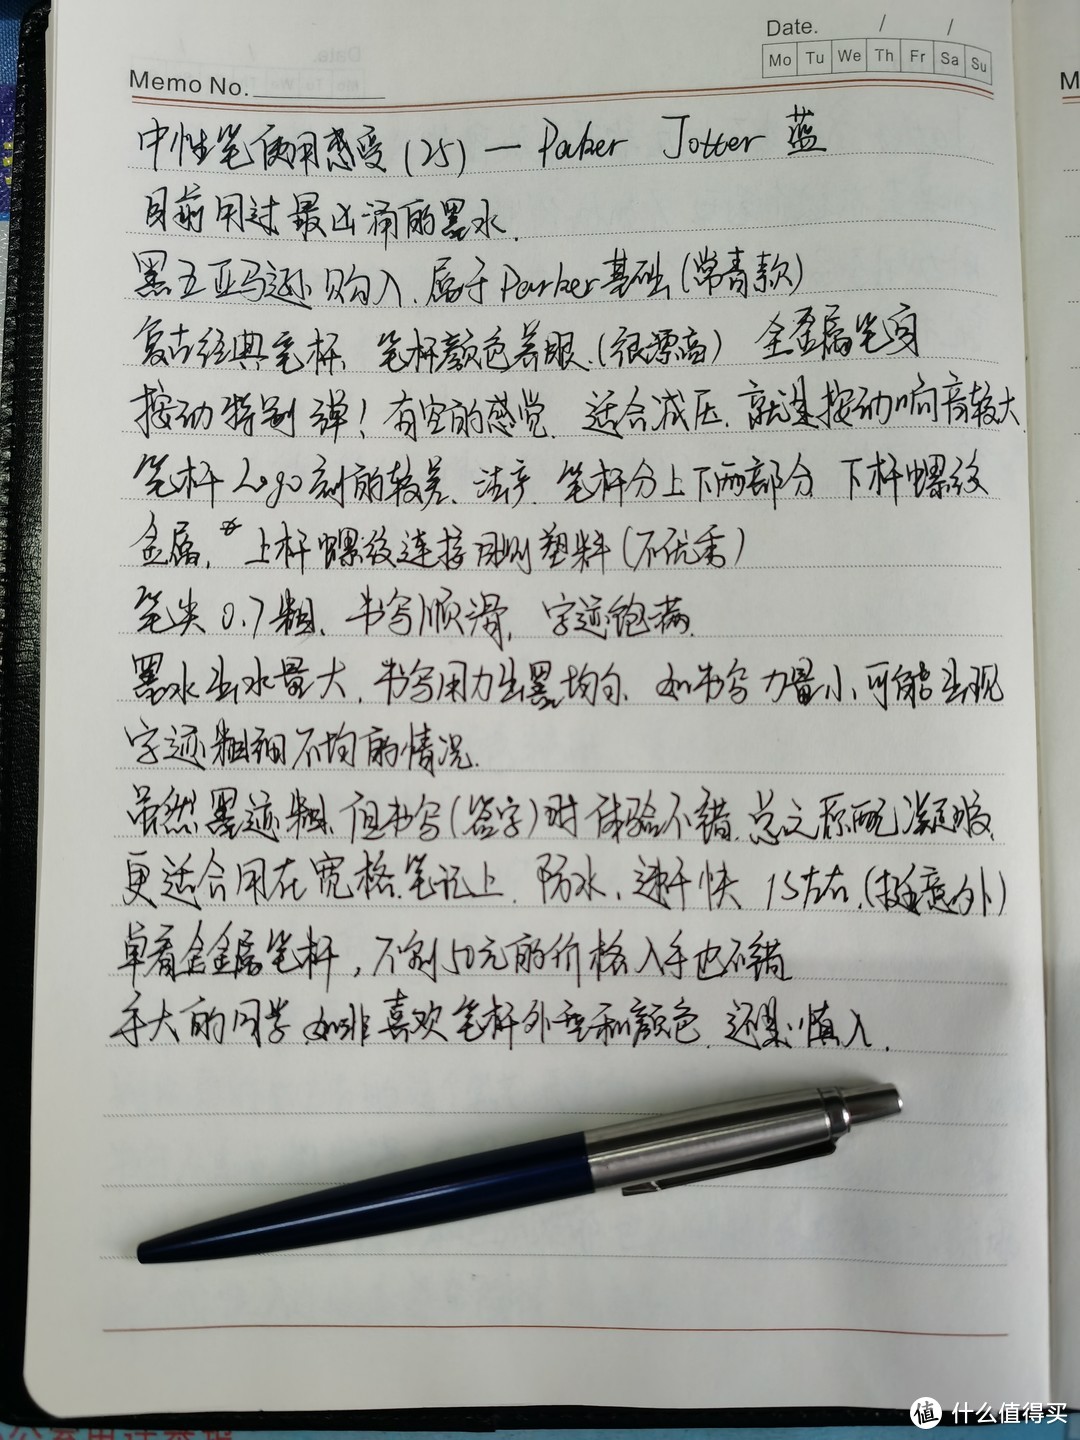 Date. / /
Mo Tu We Th Fr Sa Su
Memo No.
中性笔使用感受(25) — Parker Jotter 蓝
目前用过最汹涌的墨水.
黑五亚马逊购入.属于Parker基础(常青款)
复古经典笔杆、笔杆颜色养眼.(很漂亮) 全金属笔身
按动特别弹!有空的感觉.适合减压.就是按动响音较大
笔杆Logo刻的较差、法产.笔杆分上下两部分 下杆螺纹
金属, 上杆螺纹连接用则塑料(不优秀)
笔尖0.7粗、书写顺滑,字迹饱满.
墨水出水量大,书写用力出墨均匀、如书写力量小、可能出现
字迹粗细不均的情况.
虽然墨迹粗.但书写(签字)时体验不错.总之原配凝胶
更适合用在宽格笔记上.防水、速干快 1S左右.(挺意外)
单看全金属笔杆,不到50元的价格入手也不错
手大的同学.如非喜欢笔杆外型和颜色.还是慎入.
值 什么值得买